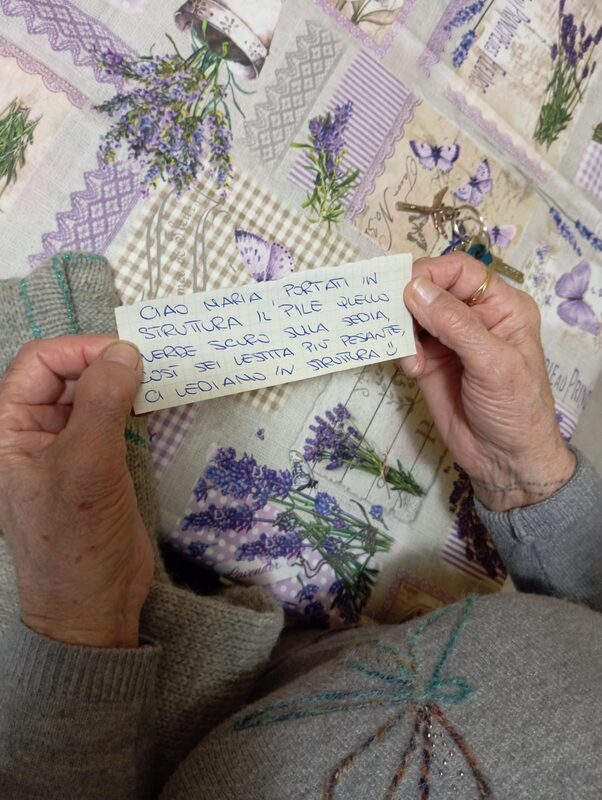 CIAO MARIA, PORTATI IN
STRUTTURA IL PILE QUELLO
VERDE SCURO SULLA SEDIA,
COSÌ SEI VESTITA PIÙ PESANTE,
CI VEDIAMO IN STRUTTURA
Lavender